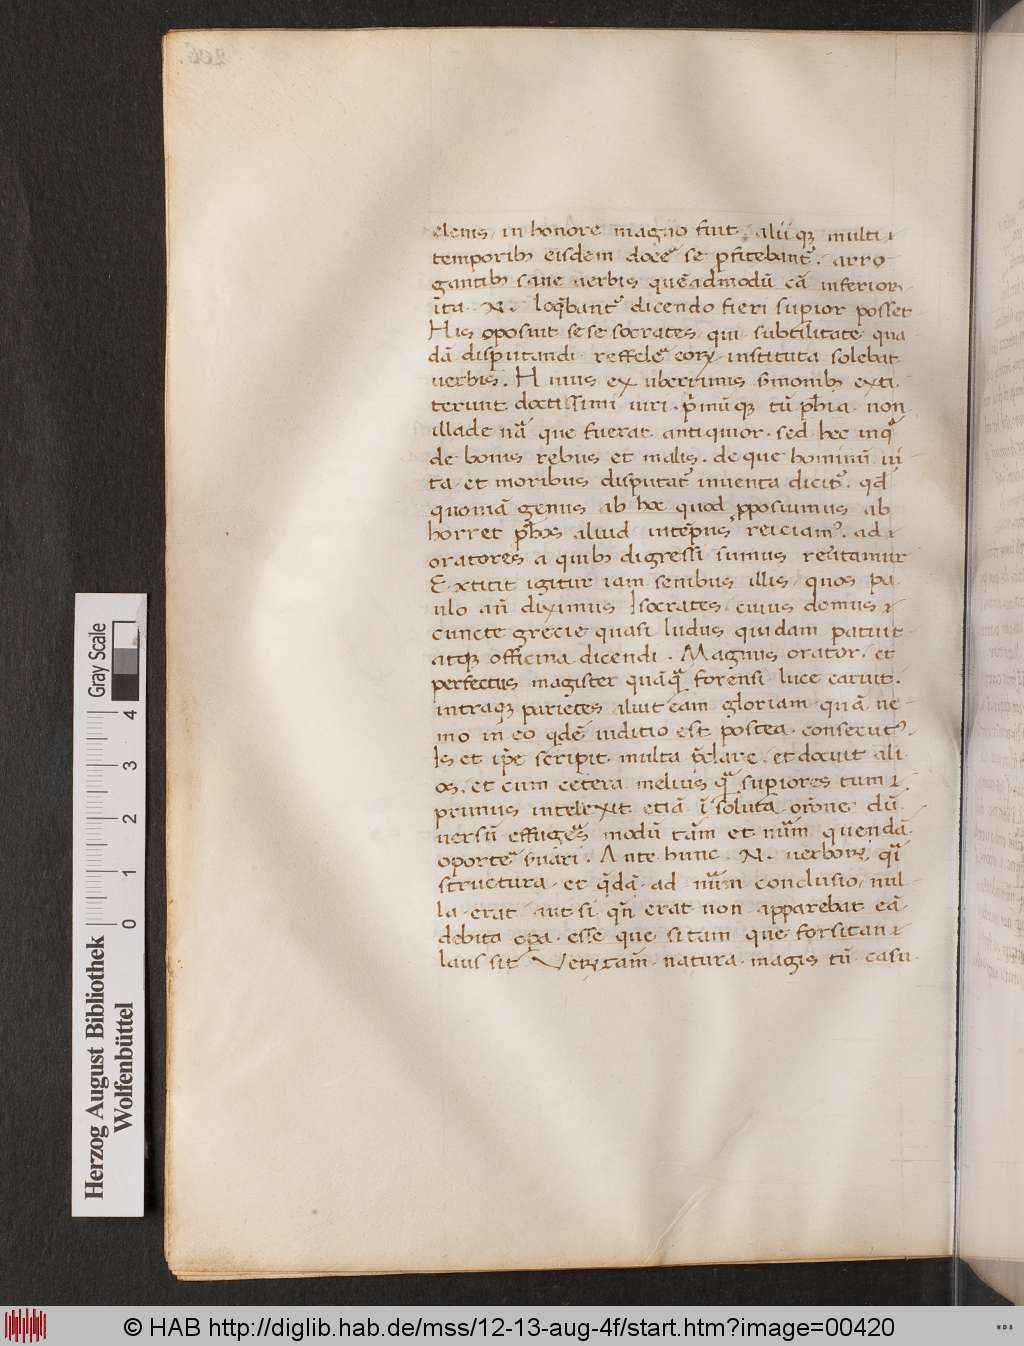 206.
eleius, in honore magno fuit, alii qꝫ multi
temporibꝫ eisdem docere se profitebant᷑. arro
gantibꝫ sane uerbis quēadmodū cā inferior
ita .N. loq̄bant᷑ dicendo fieri supior posset
His oposuit sese socrates, qui subtilitate qua
dā disputandi refelle᷑ eoꝝ instituta solebat
uerbis. Huius ex uberrimis s̄monibꝫ exti
terunt doctissimi uiri. p̄mūqꝫ tū ph̄ia non
illa de nā que fuerat antiquior. sed hec in q̄
de bonis rebus et malis. de que hominū ui
ta et moribus disputat᷑ inuenta dicit᷑. qd̄
quoniā genus ab hoc quod ꝓposuimus ab
horret ph̄os aliud in tēpus reiciam᷑. ad
oratores a quibꝫ digressi sumus reūtamur
Extitit igitur iam senibus illis, quos pa
ulo an̄ diximus Isocrates cuius domus
cuncte grecie quasi ludus quidam patuit
atqꝫ officina dicendi. Magnus orator. et
perfectus magister quāq̄ forensi luce caruit.
intraqꝫ parietes aluit eam gloriam quā ne
mo in eo qdē iuditio est postea consecut᷑.
Is et ip̄e scripsit multa p̄clare. et docuit ali
os. et cum cetera melius q̄ supiores tum
primus intelexit etiā ī soluta orōne dū
uersū effuge᷑ modū tām et nūm quendā
oporte᷑ s̄uari. Ante hunc .N. uerboꝝ q̄i
structura et q̄dā ad nūm conclusio, nul
la erat aut si qn̄ erat non apparebat eā
debita opa esse que sitam que forsitan
laus sit Veꝝ tām natura magis tū casu
Gray Scale
0 1 2 3 4
Herzog August Bibliothek
Wolfenbüttel
© HAB http://diglib.hab.de/mss/12-13-aug-4f/start.htm?image=00420